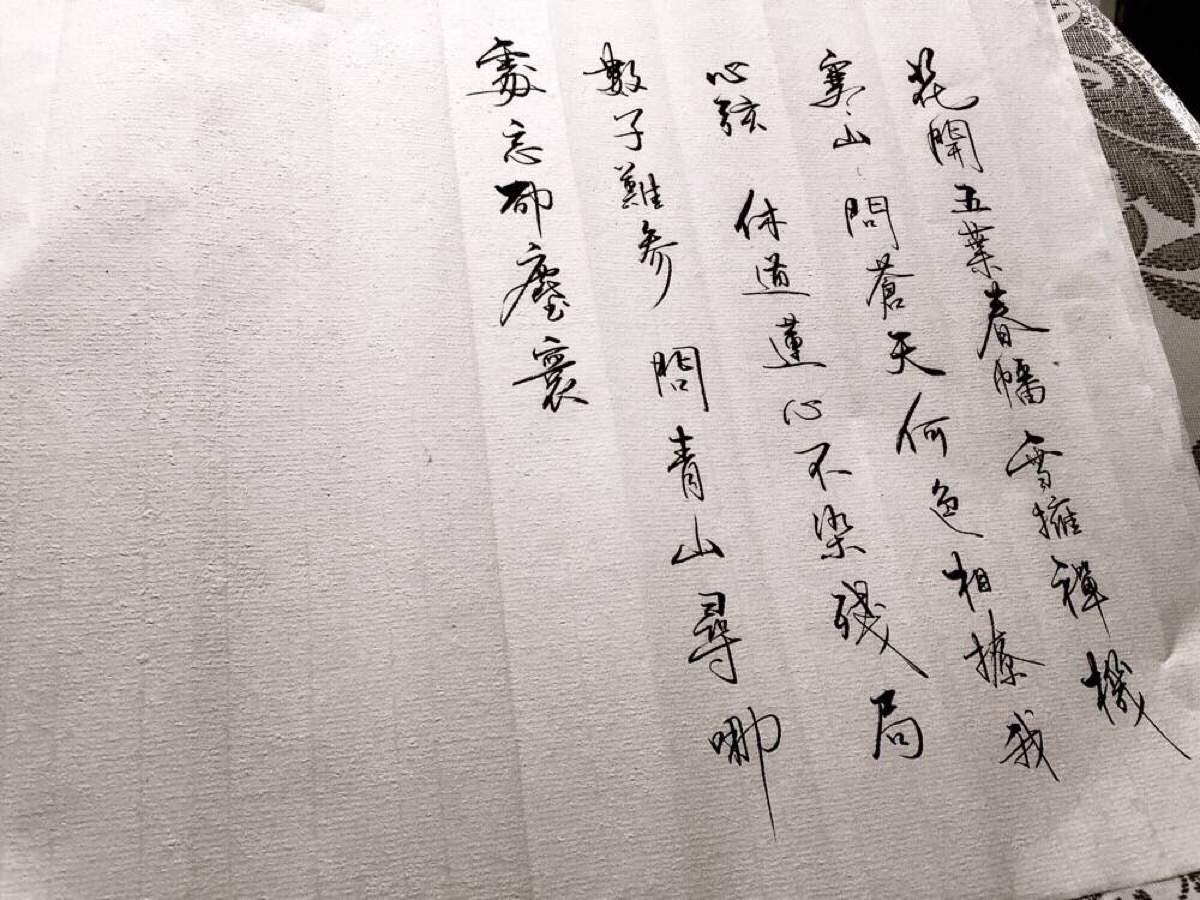 花開五葉春幡雪擁禪機
寒山問蒼天何色相撩我
心弦休道蓮心不染殘局
數子難参問青山尋哪
處忘卻塵寰